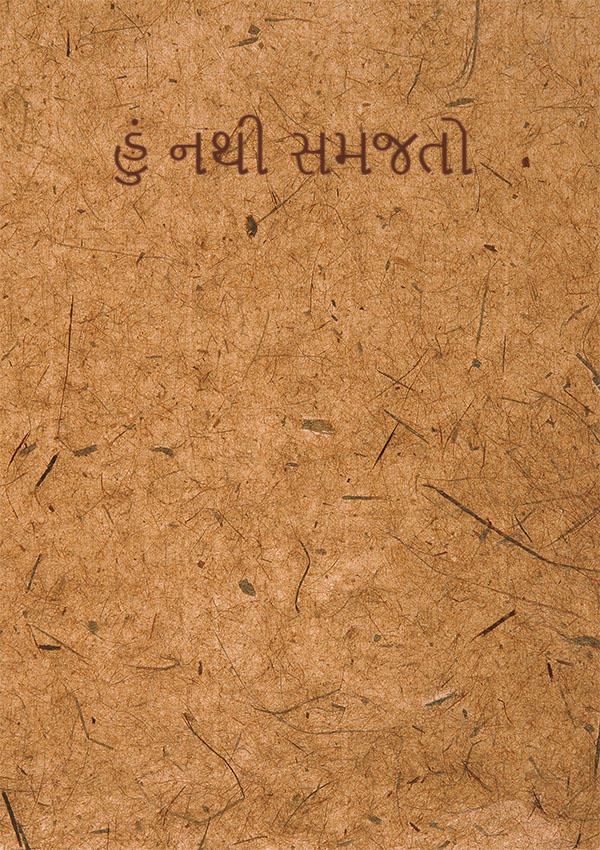 હું નથી સમજતો